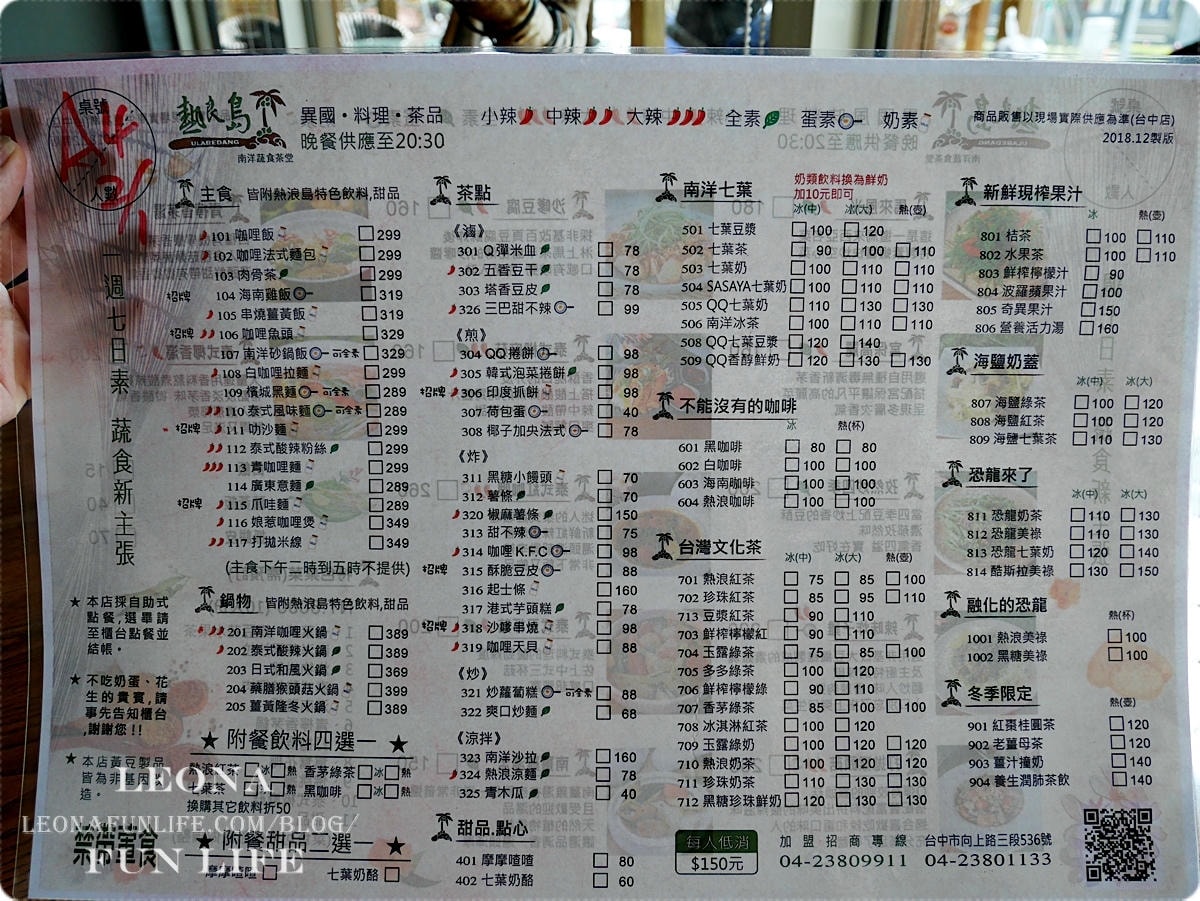 桌號
A4
2/1
人數
熱浪島
ULABEDANG
南洋蔬食茶堂
異國·料理·茶品
晚餐供應至20:30
小辣 中辣 大辣 全素 蛋素 奶素
商品販售以現場實際供應為準(台中店)
2018.12製版
一週七日素 蔬食新主張
主食 皆附熱浪島特色飲料,甜品
101 咖哩飯 299
102 咖哩法式麵包 299
103 肉骨茶 299
招牌 104 海南雞飯 319
105 串燒薑黃飯 319
招牌 106 咖哩魚頭 329
107 南洋砂鍋飯 可全素 329
108 白咖哩拉麵 299
109 檳城黑麵 可全素 289
110 泰式風味麵 可全素 289
招牌 111 叻沙麵 299
112 泰式酸辣粉絲 299
113 青咖哩麵 299
114 廣東意麵 289
招牌 115 爪哇麵 289
116 娘惹咖哩煲 349
117 打拋米線 349
(主食下午二時到五時不提供)
鍋物 皆附熱浪島特色飲料,甜品
201 南洋咖哩火鍋 389
202 泰式酸辣火鍋 389
203 日式和風火鍋 369
204 藥膳猴頭菇火鍋 399
205 薑黃隆冬火鍋 389
★ 附餐飲料四選一 ★
熱浪紅茶 冰 熱 香茅綠茶 冰 熱
七葉茶 冰 熱 黑咖啡 冰 熱
換購其它飲料折50
★ 附餐甜品二選一 ★
摩摩喳喳 七葉奶酪
★ 本店採自助式
點餐,選畢請
至櫃台點餐並
結帳。
★ 不吃奶蛋、花
生的貴賓,請
事先告知櫃台
,謝謝您!!
★ 本店黃豆製品
皆為非基因改
造。
茶點
《滷》
301 Q彈米血 78
302 五香豆干 78
303 塔香豆皮 78
326 三巴甜不辣 99
《煎》
304 QQ捲餅 98
305 韓式泡菜捲餅 98
招牌 306 印度抓餅 98
307 荷包蛋 40
308 椰子加央法式 78
《炸》
311 黑糖小饅頭 70
312 薯條 70
320 椒麻薯條 150
313 甜不辣 75
314 咖哩K.F.C 98
招牌 315 酥脆豆皮 88
316 起士條 160
317 港式芋頭糕 78
招牌 318 沙嗲串燒 98
319 咖哩天貝 88
《炒》
321 炒蘿蔔糕 可全素 88
322 爽口炒麵 68
《涼拌》
323 南洋沙拉 160
324 熱浪涼麵 78
325 青木瓜 40
甜品.點心
401 摩摩喳喳 80
402 七葉奶酪 60
南洋七葉
奶類飲料換為鮮奶
加10元即可
冰(中) 冰(大) 熱(壺)
501 七葉豆漿 100 120
502 七葉茶 90 100 110
503 七葉奶 100 110 110
504 SASAYA七葉奶 100 110 110
505 QQ七葉奶 110 130 130
506 南洋冰茶 100 110 110
508 QQ七葉豆漿 120 140
509 QQ香醇鮮奶 120 130 130
不能沒有的咖啡
冰 熱(杯)
601 黑咖啡 80 80
602 白咖啡 100 100
603 海南咖啡 100 100
604 熱浪咖啡 100 100
台灣文化茶
冰(中) 冰(大) 熱(壺)
701 熱浪紅茶 75 85 100
702 珍珠紅茶 85 95 110
713 豆漿紅茶 90 110
703 鮮榨檸檬紅 90 110
704 玉露綠茶 75 85 100
705 多多綠茶 100 120
706 鮮榨檸檬綠 90 110
707 香茅綠茶 85 100 100
708 冰淇淋紅茶 100 120
709 玉露綠奶 100 120 120
710 熱浪奶茶 100 120 120
711 珍珠奶茶 110 130 130
712 黑糖珍珠鮮奶 120 130 130
每人低消
$150元
新鮮現榨果汁
冰 熱(壺)
801 桔茶 100 110
802 水果茶 100 110
803 鮮榨檸檬汁 90
804 波羅蘋果汁 100
805 奇異果汁 150
806 營養活力湯 160
海鹽奶蓋
冰(中) 冰(大)
807 海鹽綠茶 100 120
808 海鹽紅茶 100 120
809 海鹽七葉茶 110 130
恐龍來了
冰(中) 冰(大)
811 恐龍奶茶 110 130
812 恐龍美祿 110 130
813 恐龍七葉奶 120 140
814 酷斯拉美祿 130 150
融化的恐龍
熱(杯)
1001 熱浪美祿 100
1002 黑糖美祿 100
冬季限定
熱(壺)
901 紅棗桂圓茶 120
902 老薑母茶 120
903 薑汁撞奶 140
904 養生潤肺茶飲 140
加盟招商專線 台中市向上路三段536號
04-23809911 04-23801133
LEONA
LEONAFUNLIFE.COM/BLOG/
FUN LIFE